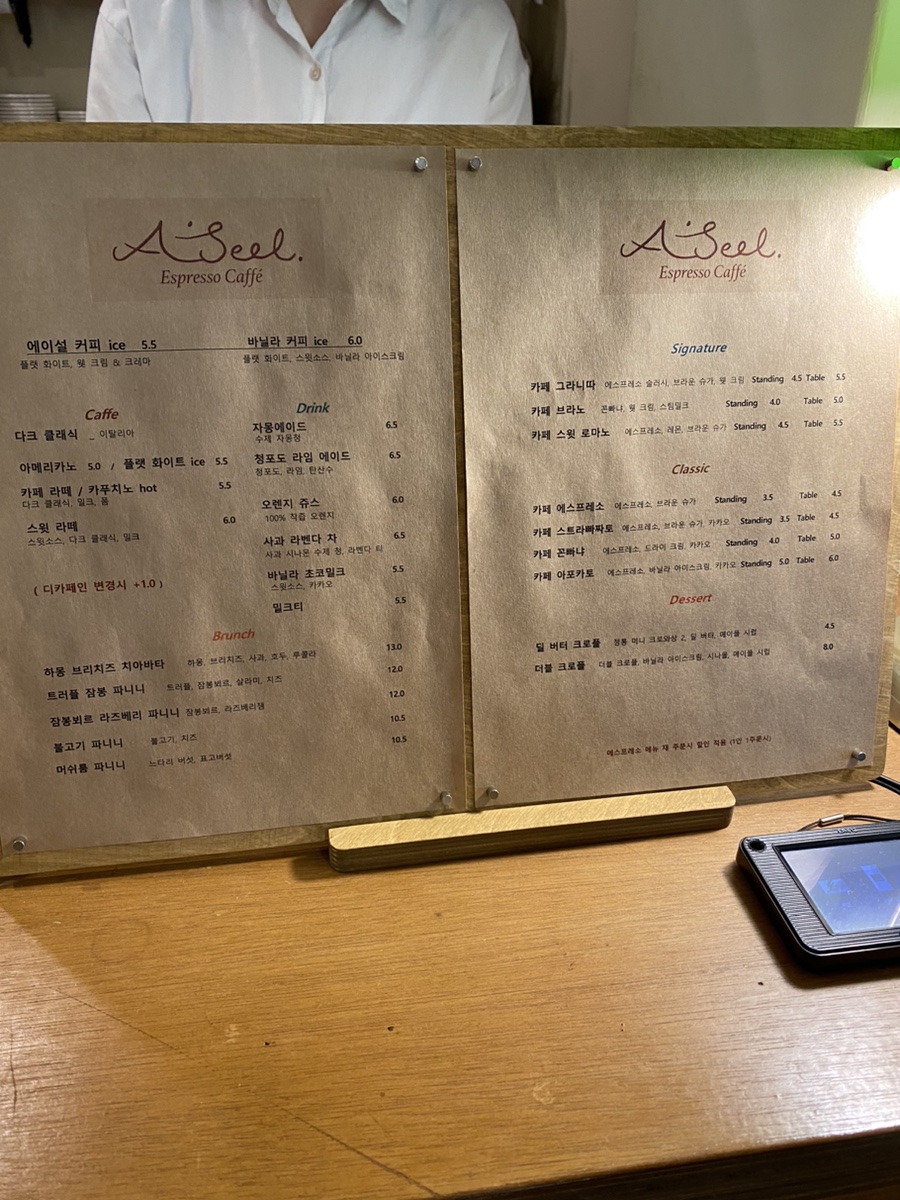 A'Seel.
Espresso Caffé
에이설 커피 ice 5.5
플랫 화이트, 웻 크림 & 크레마
바닐라 커피 ice 6.0
플랫 화이트, 스윗소스, 바닐라 아이스크림
Caffe
다크 클래식 _ 이탈리아
아메리카노 5.0 / 플랫 화이트 ice 5.5
카페 라떼 / 카푸치노 hot 5.5
다크 클래식, 밀크, 폼
스윗 라떼 6.0
스윗소스, 다크 클래식, 밀크
( 디카페인 변경시 +1.0 )
Drink
자몽에이드 6.5
수제 자몽청
청포도 라임 에이드 6.5
청포도, 라임, 탄산수
오렌지 쥬스 6.0
100% 착즙 오렌지
사과 라벤다 차 6.5
사과 시나몬 수제 청, 라벤다 티
바닐라 초코밀크 5.5
스윗소스, 카카오
밀크티 5.5
Brunch
하몽 브리치즈 치아바타 하몽, 브리치즈, 사과, 호두, 루꼴라 13.0
트러플 잠봉 파니니 트러플, 잠봉뵈르, 살라미, 치즈 12.0
잠봉뵈르 라즈베리 파니니 잠봉뵈르, 라즈베리잼 12.0
불고기 파니니 불고기, 치즈 10.5
머쉬룸 파니니 느타리 버섯, 표고버섯 10.5
A'Seel.
Espresso Caffé
Signature
카페 그라니따 에스프레소 슬러시, 브라운 슈가, 웻 크림 Standing 4.5 Table 5.5
카페 브라노 꼰빠냐, 웻 크림, 스팀밀크 Standing 4.0 Table 5.0
카페 스윗 로마노 에스프레소, 레몬, 브라운 슈가 Standing 4.5 Table 5.5
Classic
카페 에스프레소 에스프레소, 브라운 슈가 Standing 3.5 Table 4.5
카페 스트라빠짜토 에스프레소, 브라운 슈가, 카카오 Standing 3.5 Table 4.5
카페 꼰빠냐 에스프레소, 드라이 크림, 카카오 Standing 4.0 Table 5.0
카페 아포카토 에스프레소, 바닐라 아이스크림, 카카오 Standing 5.0 Table 6.0
Dessert
딜 버터 크로플 정통 미니 크로와상 2, 딜 버터, 메이플 시럽 4.5
더블 크로플 더블 크로플, 바닐라 아이스크림, 시나몬, 메이플 시럽 8.0
에스프레소 메뉴 재 주문시 할인 적용 (1인 1주문시)